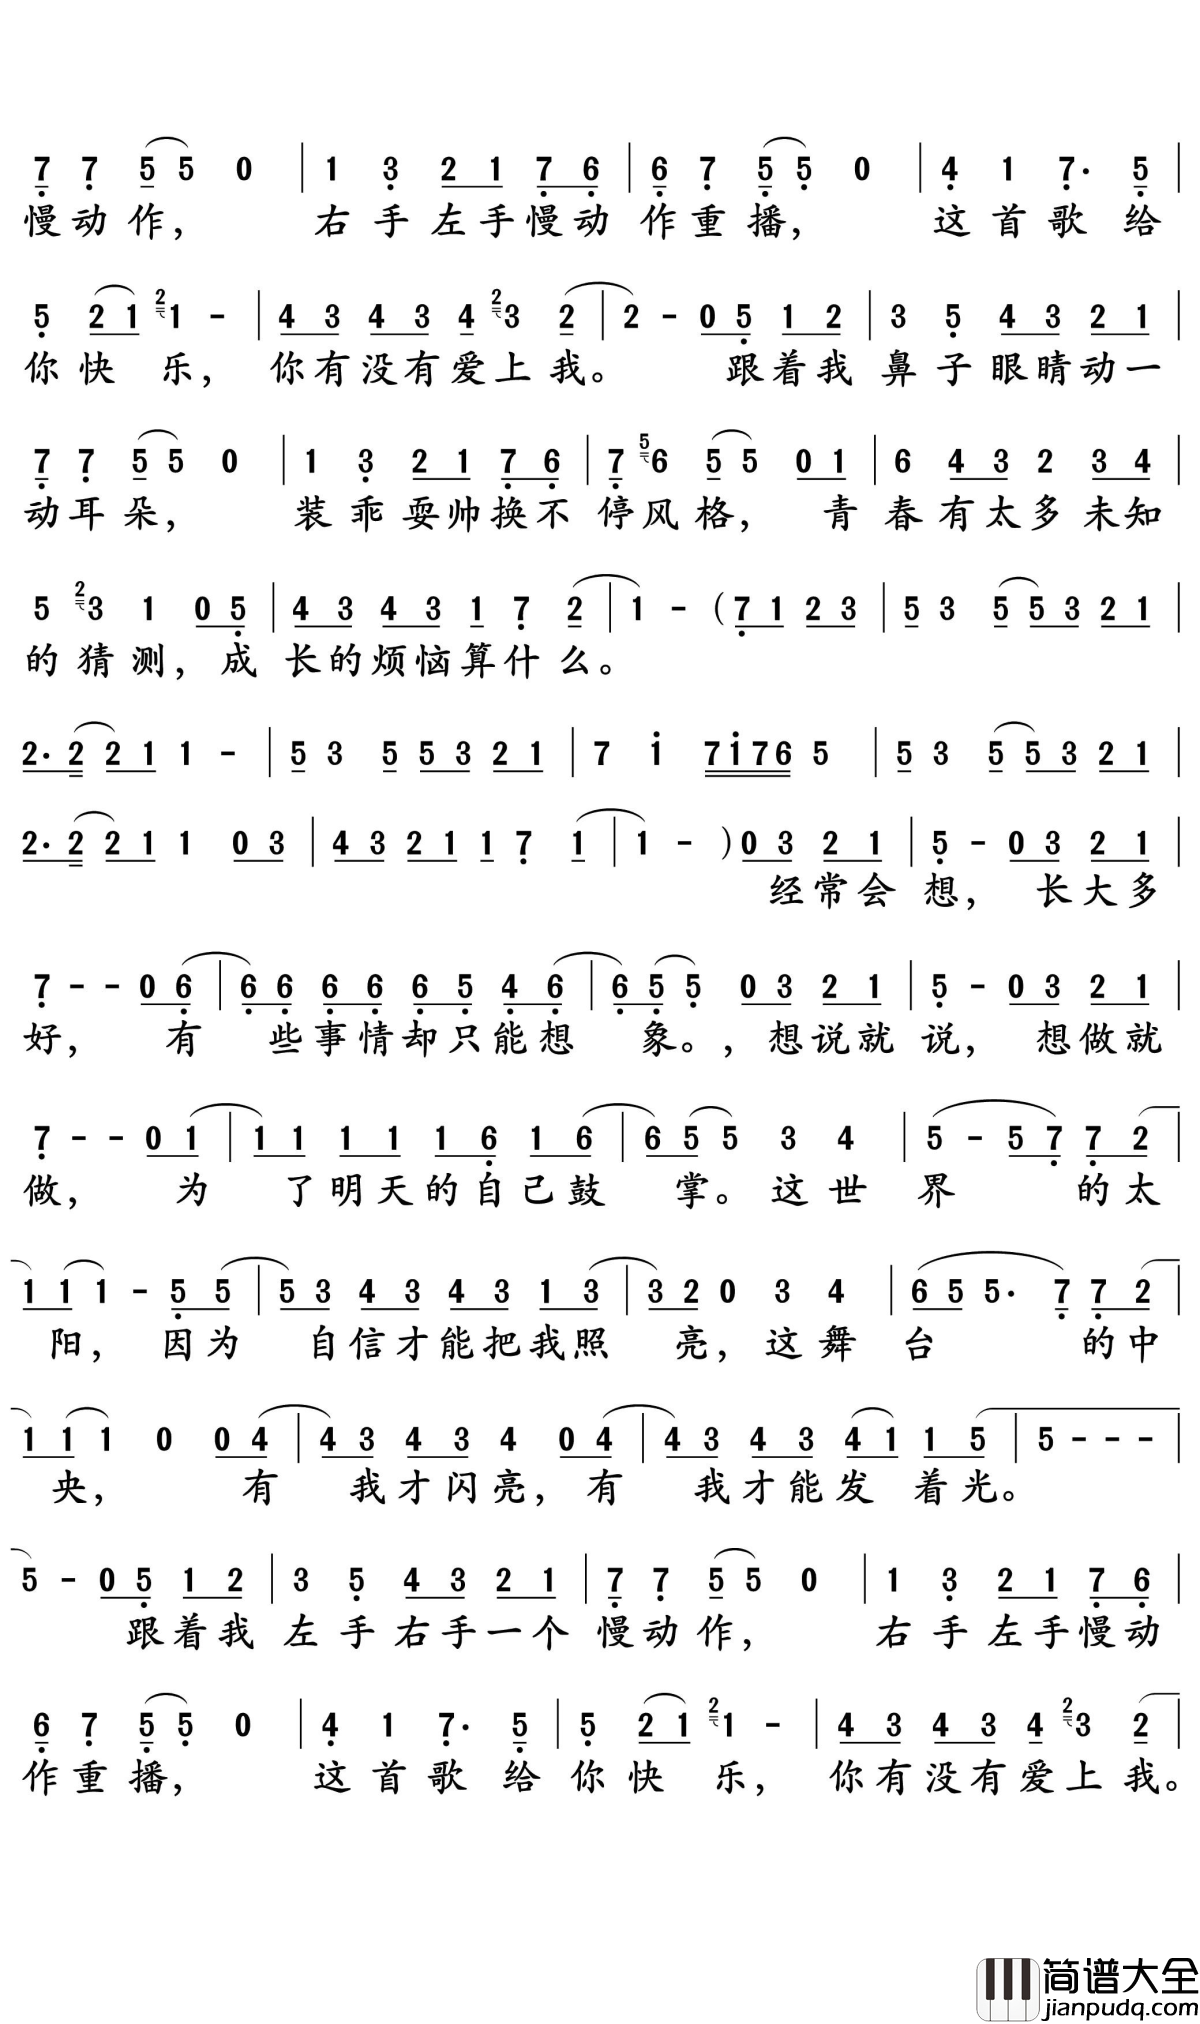 7 7 5 5 0 | 1 3 2 1 7 6 | 6 7 5 5 0 | 4 1 7· 5 |
慢动作， 右手左手慢动 作重播， 这首歌给
5 2 1 2 1 - | 4 3 4 3 4 2 3 2 | 2 - 0 5 1 2 | 3 5 4 3 2 1 |
你快乐， 你有没有爱上我。 跟着我 鼻子眼睛动一
7 7 5 5 0 | 1 3 2 1 7 6 | 7 5 6 5 5 0 1 | 6 4 3 2 3 4 |
动耳朵， 装乖耍帅换不 停风格， 青 春有太多未知
5 2 3 1 0 5 | 4 3 4 3 1 7 2 | 1 - (7 1 2 3 | 5 3 5 5 3 2 1 |
的猜测，成 长的烦恼算什么。
2· 2 2 1 1 - | 5 3 5 5 3 2 1 | 7 1 7 1 7 6 5 | 5 3 5 5 3 2 1 |
2· 2 2 1 1 0 3 | 4 3 2 1 1 7 1 | 1 - ) 0 3 2 1 | 5 - 0 3 2 1 |
经常会 想， 长大多
7 - - 0 6 | 6 6 6 6 6 5 4 6 | 6 5 5 0 3 2 1 | 5 - 0 3 2 1 |
好， 有 些事情却只能想 象。，想说就 说， 想做就
7 - - 0 1 | 1 1 1 1 1 6 1 6 | 6 5 5 3 4 | 5 - 5 7 7 2 |
做， 为 了明天的自己鼓 掌。这世 界 的太
1 1 1 - 5 5 | 5 3 4 3 4 3 1 3 | 3 2 0 3 4 | 6 5 5· 7 7 2 |
阳， 因为 自信才能把我照 亮，这舞 台 的中
1 1 1 0 0 4 | 4 3 4 3 4 0 4 | 4 3 4 3 4 1 1 5 | 5 - - - |
央， 有 我才闪亮，有 我才能发 着光。
5 - 0 5 1 2 | 3 5 4 3 2 1 | 7 7 5 5 0 | 1 3 2 1 7 6 |
跟着我 左手右手一个 慢动作， 右手左手慢动
6 7 5 5 0 | 4 1 7· 5 | 5 2 1 2 1 - | 4 3 4 3 4 2 3 2 |
作重播， 这首歌给 你快乐， 你有没有爱上我。
简谱大全
jianpudq.com